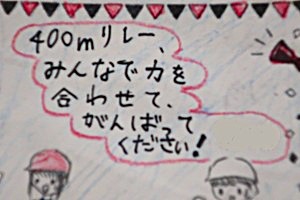 400mリレー、
みんなで力を
合わせて、
がんばって
ください!